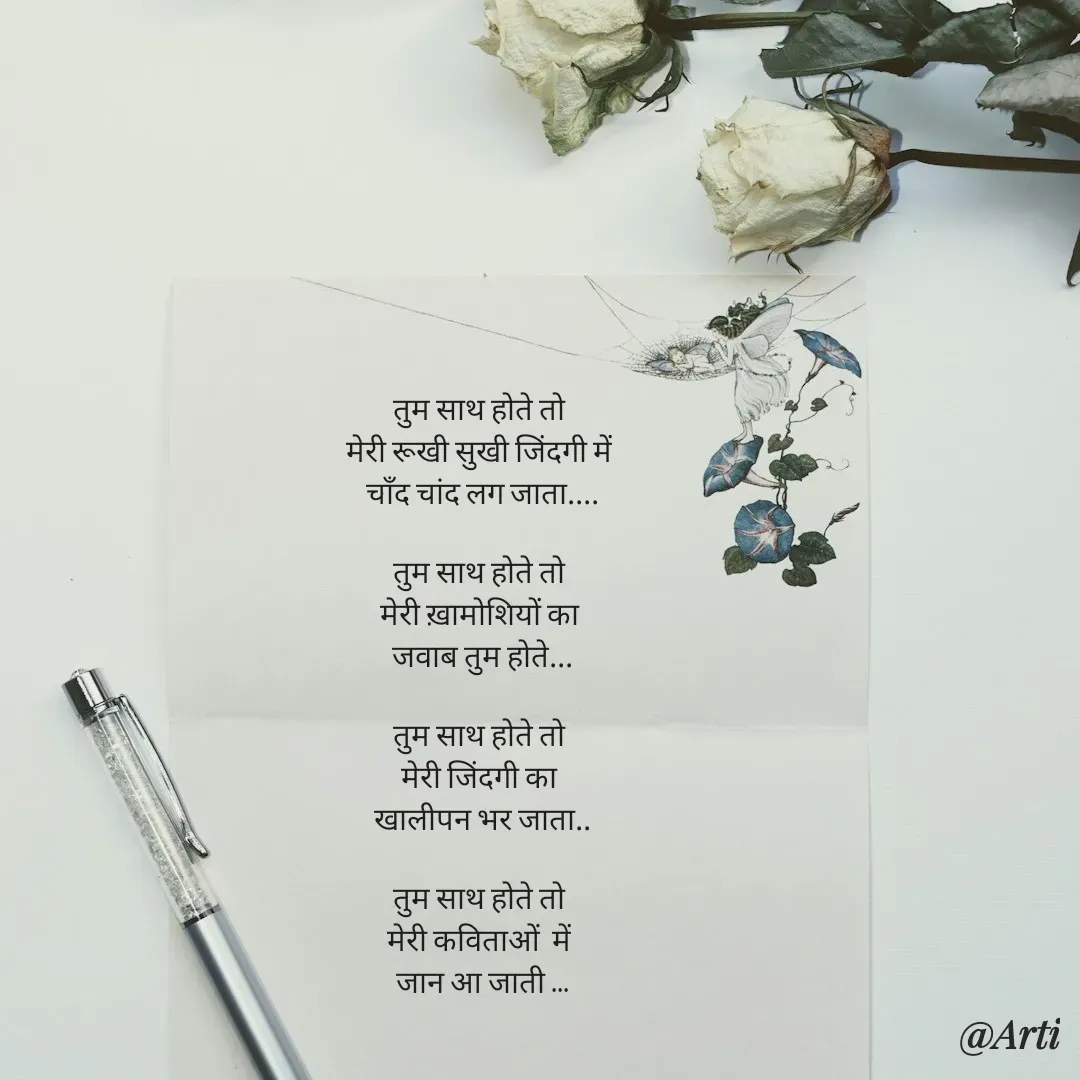 तुम साथ होते तो
मेरी रूखी सुखी जिंदगी में
चाँद चांद लग जाता....
तुम साथ होते तो
मेरी ख़ामोशियों का
जवाब तुम होते...
तुम साथ होते तो
मेरी जिंदगी का
खालीपन भर जाता..
तुम साथ होते तो
मेरी कविताओं में
जान आ जाती ...
@Arti